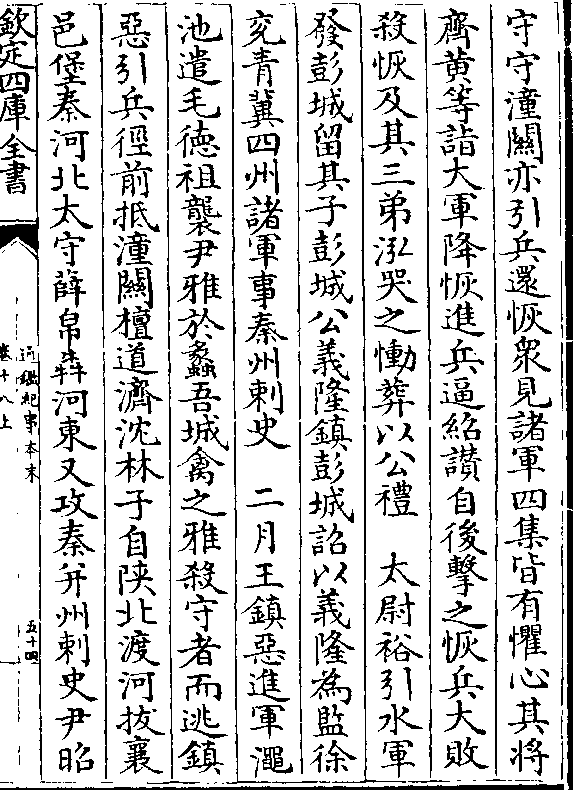 守守潼關亦引兵還恢衆見諸軍四集皆有懼心其將
齊黄等詣大軍降恢進兵逼紹讃自後擊之恢兵大敗
殺恢及其三弟泓哭之慟葬以公禮　太尉裕引水軍
發彭城留其子彭城公義隆鎮彭城詔以義隆為監徐
兖青冀四州諸軍事秦州刺史　二月王鎮惡進軍澠
池遣毛德祖襲尹雅於蠡吾城禽之雅殺守者而逃鎮
惡引兵徑前抵潼關檀道濟沈林子自陜北渡河拔襄
邑堡秦河北太守薛帛犇河東又攻秦并州刺史尹昭
欽定四庫全書
通鑑紀事本末
卷十八上
五十四